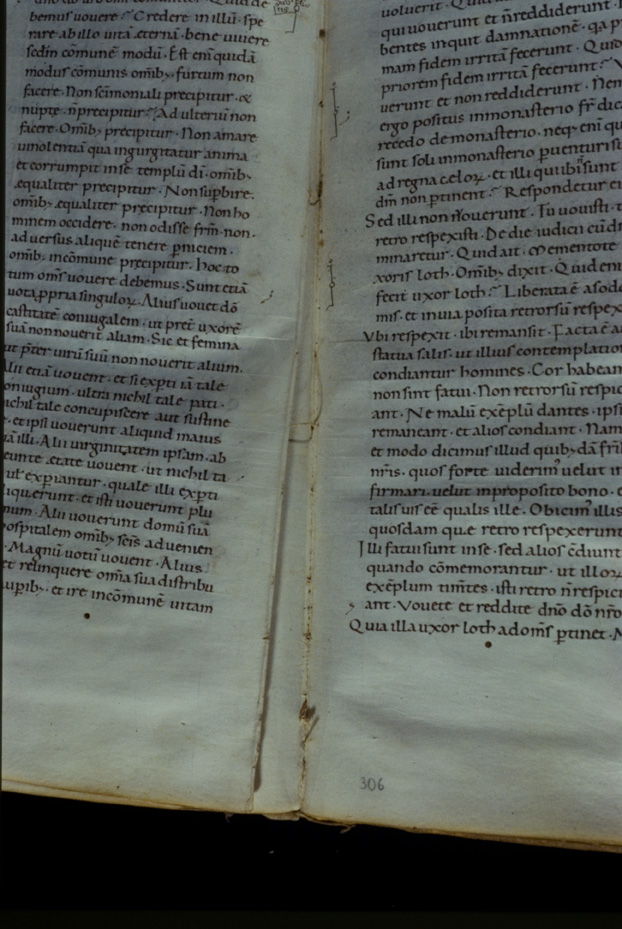 bemus uouere ⁊ Credere in illū · spe
rare ab illo uitā ęternā · bene uiuere
sedm̄ cōmunē modū · Est eni quidā
modus cōmunis omīb; furtum non
facere · Non sc̄imoniali precipitur · &
nupte · n̄ precipitur Adulteriū non
facere · Omīb; precipitur · Non amare
uinolentiā qua ingurgitatur anima
et corrumpit in se templū dī · omīb;
ęqualiter precipitur · Non supbire ·
omīb; ęqualiter precipitur · Non ho
minem occidere · non odisse frm̄ · non ·
aduersus aliquē tenere pniciem ·
omīb; incōmune precipitur · hoc to
tum om̄s uouere debemus · Sunt etiā
uota ppria singuloꝝ · Alius uouet dō
castitatē coniugalem · ut pret̄ uxorē
suā non nouerit aliam · Sic et femina
ut pt̄er uirū suū non nouerit alium ·
Alii etiā uouent · et si expti iā tale
onuigium · ultra nichil tale pati ·
nichil tale concupiscere aut sustine
· et ipsi uouerunt aliquid maius
illi · Alii uirginitatem ipsam · ab
eunte ętate uouent · ut nichil ta
experiantur · quale illi expti
liquerunt · et isti uouerunt plu
mum · Alii uouerunt domū suā
ospitalem omīb; sc̄is aduenien
· Magnū uotū uouent · Alius
et relinquere om̄ia sua distribu
aupīb; · et ire incōmunē uitam
uoluerit ·
qui uouerunt et n̄ reddiderunt ·
bentes inquit damnationē · qa p
mam fidem irritā fecerunt · Quid
priorem fidem irritā fecerunt
uerunt et non reddiderunt · Nen
ergo positus inmonasterio fr̄ dic
recedo de monasterio · neq; eni qu
sunt soli inmonasterio puenturi st
ad regna celoꝝ · et illi qui ibi sunt
dm̄ non ptinent · Respondetur ei
Sed illi non uouerunt · Tu uouisti · t
retro respexisti · De die iudicii cū dn̄
minaretur · Quid ait · Mementote
xoris loth · Omīb; dixit · Quid eni
fecit uxor loth Liberata ē a sodo
mis · et in uia posita retrorsū respex
Vbi respexit · ibi remansit · Facta ē
statua salis · ut illius contemplatio
condiantur homines · Cor habean
non sint fatui · Non retrorsū respic
ant · Ne malū exēplū dantes · ipsi
remaneant · et alios condiant · Nam
et modo dicimus illud quib;dā frīb
nr̄is · quos forte uiderim' uelut in
firmari uelut inproposito bono · e
talis uis eē qualis ille · Obicim' illis
quosdam que retro respexerunt
Illi fatui sunt in se · sed alios cōdiunt
quando cōmemorantur · ut illoꝝ
exēplum tim̄tes · isti retro n̄ respici
ant · Vouete et reddite dn̄o dō nr̄o
Quia illa uxor loth ad om̄s ptinet ·
306